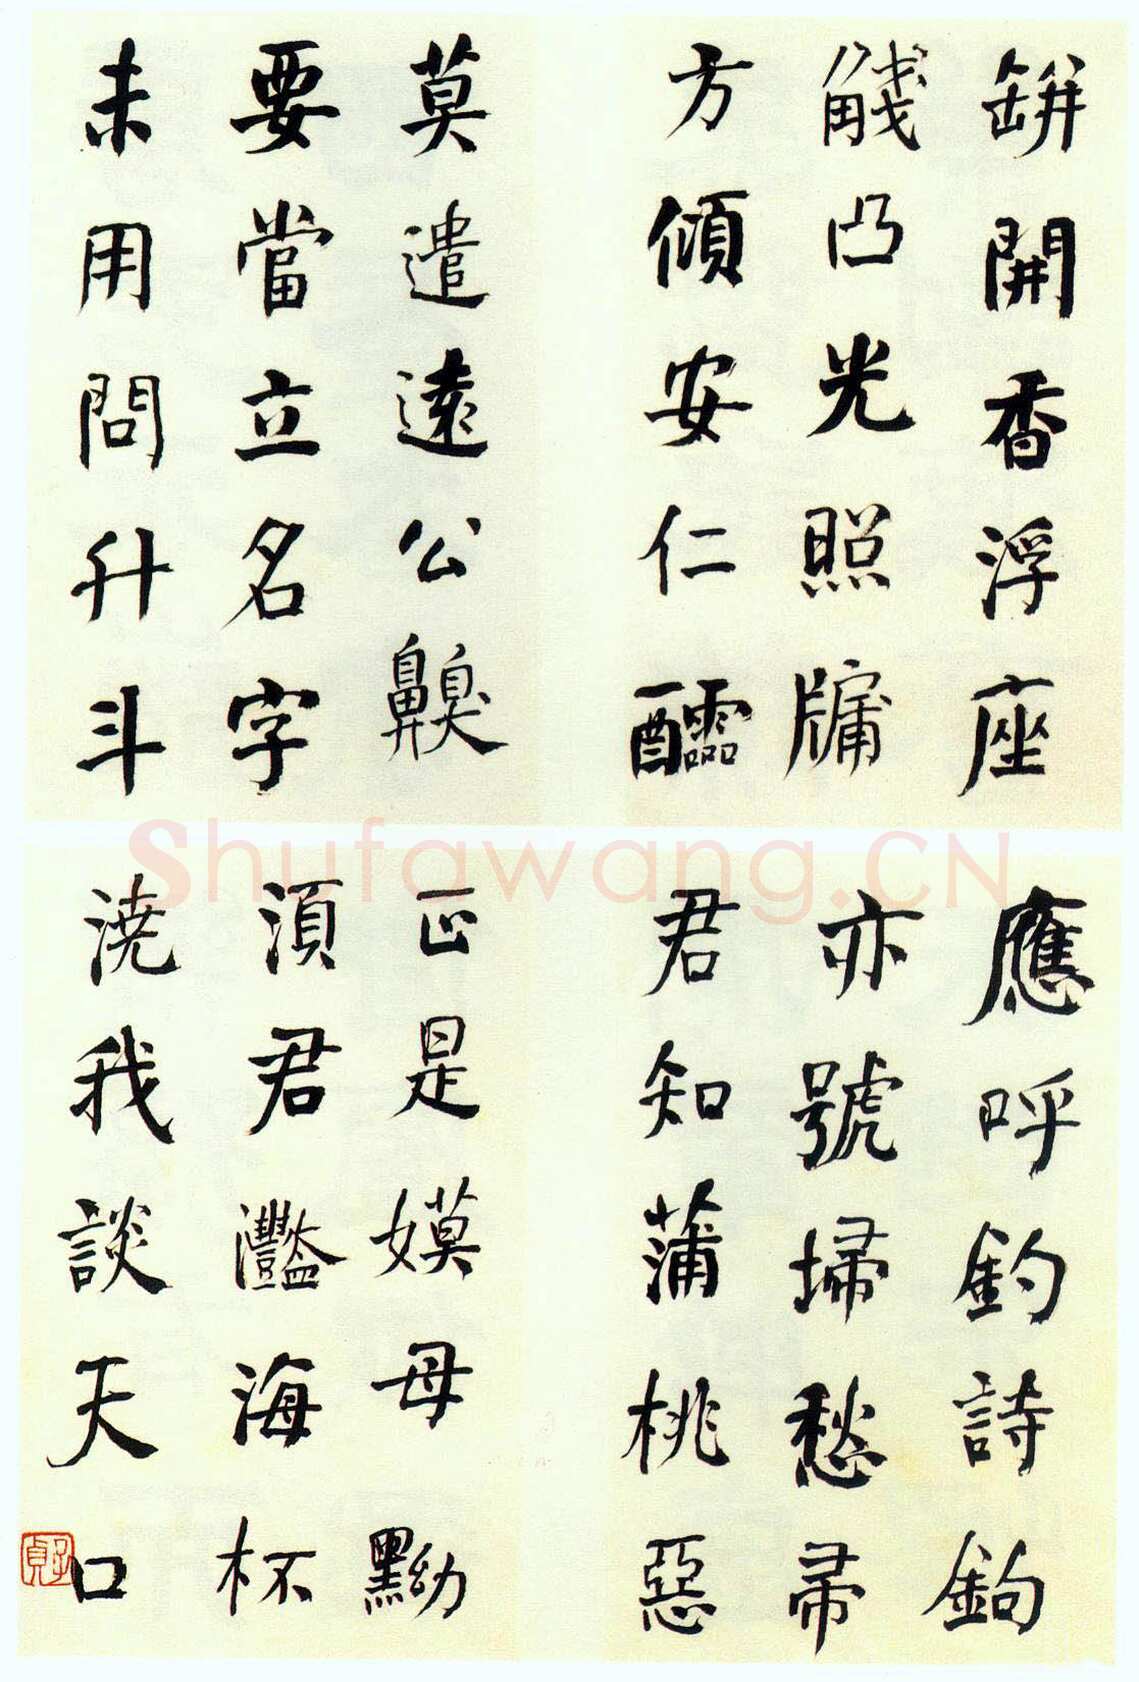 缾開香浮座
凸光照牖
方傾安仁醽
莫遣遠公齅
要當立名字
未用問升斗
應呼釣詩鉤
亦號埽愁帚
君知蒲桃惡
正是嫫母黝
須君灩海杯
澆我談天口
子貞
Shufawang.CN